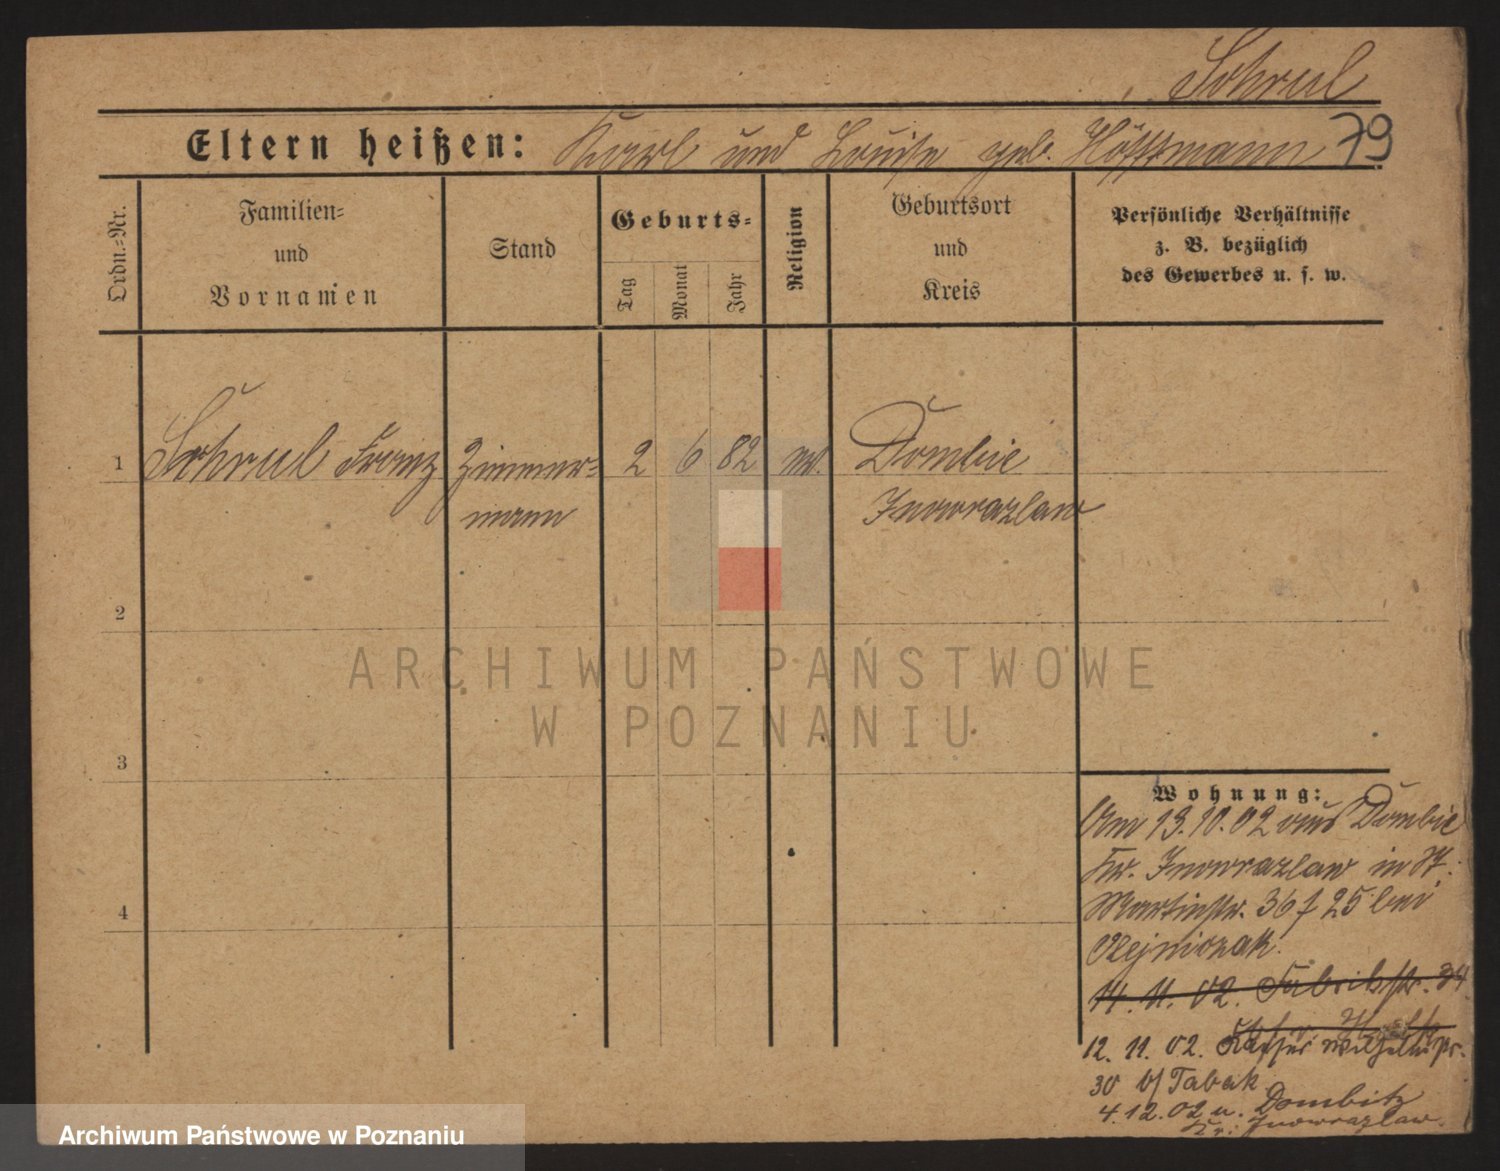 Schrul
Eltern heißen: Karl und Louise geb. Höffmann 79
Ordn.-Nr.
Familien-
und
Vornamen
Stand
Geburts-
Tag
Monat
Jahr
Religion
Geburtsort
und
Kreis
Persönliche Verhältnisse
z. B. bezüglich
des Gewerbes u. s. w.
1 Schrul Franz Zimmer- 2 6 82 ev. Dombie
mann Inowrazlaw
2
3
4
ARCHIWUM PAŃSTWOWE
W POZNANIU
Wohnung:
Am 13.10.02 aus Dombie
Kr. Inowrazlaw in St.
Martinstr. 36 f 25 bei
Olejniczak.
14. 11. 02. Fabrikstr. 34
12. 11. 02. Kaiser Wilhelmstr.
30 b/ Tabak
4.12.02 n. Dombitz
Kr. Inowrazlaw.
Archiwum Państwowe w Poznaniu